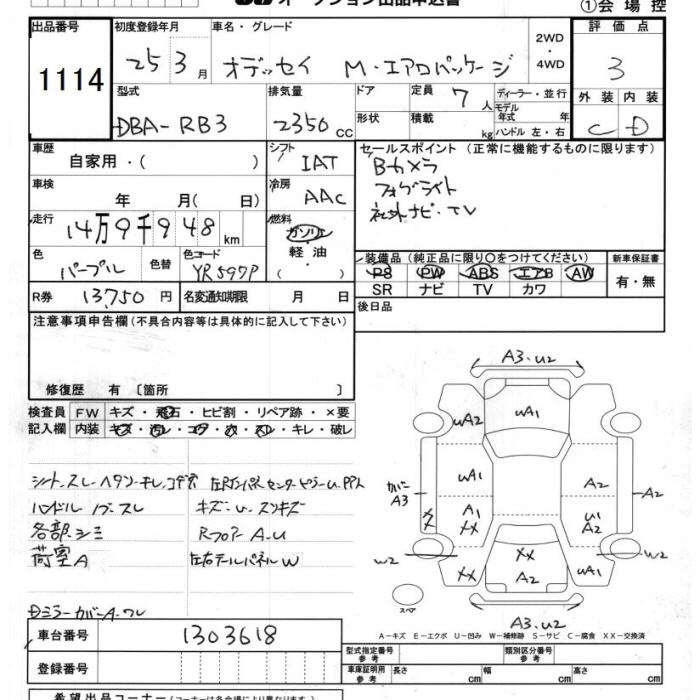 オークション出品申込書
①会場控
出品番号
1114
初度登録年月
25年3月
車名・グレード
オデッセイ M・エアロパッケージ
2WD
・
4WD
評価点
3
型式
DBA-RB3
排気量
2350cc
ドア
形状
定員 7人
積載 kg
ディーラー・並行
モデル年式 年
ハンドル 左・右
外装 内装
C D
車歴
自家用・( )
シフト
IAT
セールスポイント (正常に機能するものに限ります)
Bカメラ
フォグライト
社外ナビ・TV
車検
年 月( 日)
冷房
AAC
走行
14万9千948km
燃料
ガソリン
軽油
・
( )
色
パープル
色替
色コード
YR597P
装備品 (純正品に限り○をつけてください)
PS PW ABS エアB AW
SR ナビ TV カワ
新車保証書
有・無
R券 13,750円
名変通知期限 月 日
後日品
注意事項申告欄(不具合内容等は具体的に記入して下さい)
修復歴 有 〔箇所 〕
検査員 FW キズ・飛石・ヒビ割・リペア跡・×要
記入欄 内装 キズ・汚レ・コゲ・穴・スレ・キレ・破レ
ハンドル ノブ スレ
キズ・U・スリキズ
各部シミ
Rフロアー A.U
荷室A
左右テールパネルW
DミラーカバーA.ワレ
A3.U2
UA2
UA1
カバー
A3
UA1
A2
A2
A1
XX
U1
A2
XX
W2
W2
XX
XX
A2
UA1
スペア
A3.U2
A-キズ E-エクボ U-凹み W-補修跡 S-サビ C-腐食 XX-交換済
車台番号 1303618
登録番号
型式指定番号
参考
類別区分番号
参考
車庫証明用
参考
長さ cm 幅 cm 高さ cm
希望出品コーナー(コーナーは各会場により異なります)